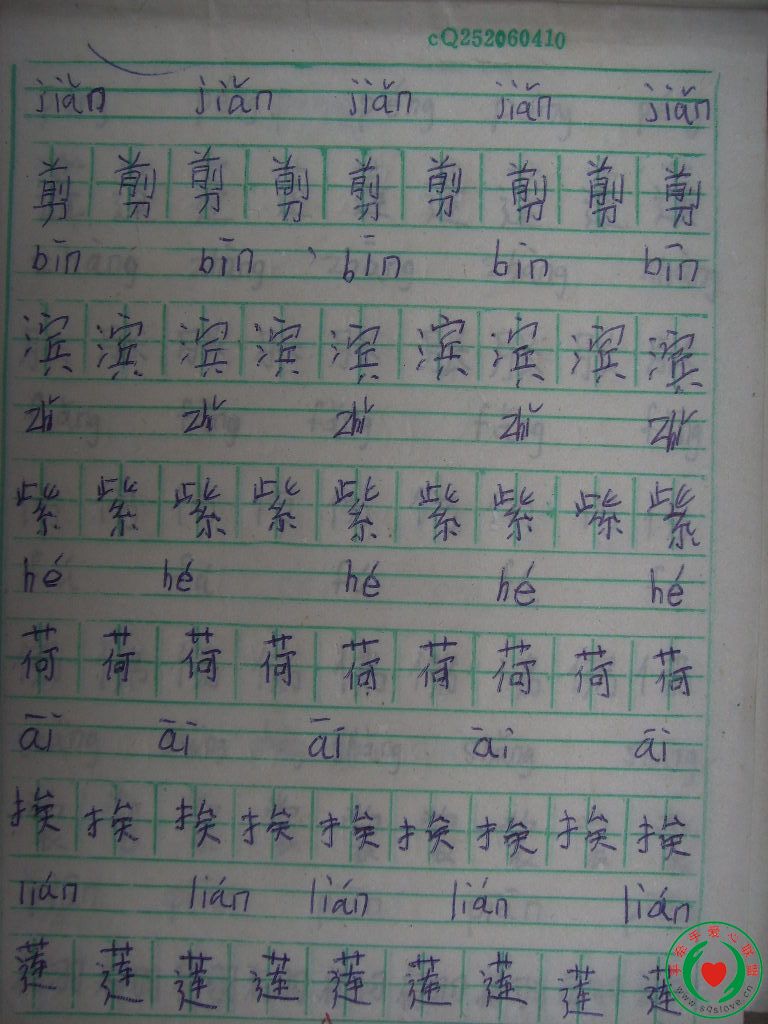 cQ252060410
jiǎn jiǎn jiǎn jiǎn jiǎn
剪 剪 剪 剪 剪 剪 剪 剪 剪
bīn bīn bīn bīn bīn
滨 滨 滨 滨 滨 滨 滨 滨 滨
zhǐ zhǐ zhǐ zhǐ zhǐ
紫 紫 紫 紫 紫 紫 紫 紫 紫
hé hé hé hé hé
荷 荷 荷 荷 荷 荷 荷 荷 荷
āi āi āi āi āi
挨 挨 挨 挨 挨 挨 挨 挨 挨
lián lián lián lián lián
莲 莲 莲 莲 莲 莲 莲 莲 莲
手牵手爱心联盟
www.sqslove.cn